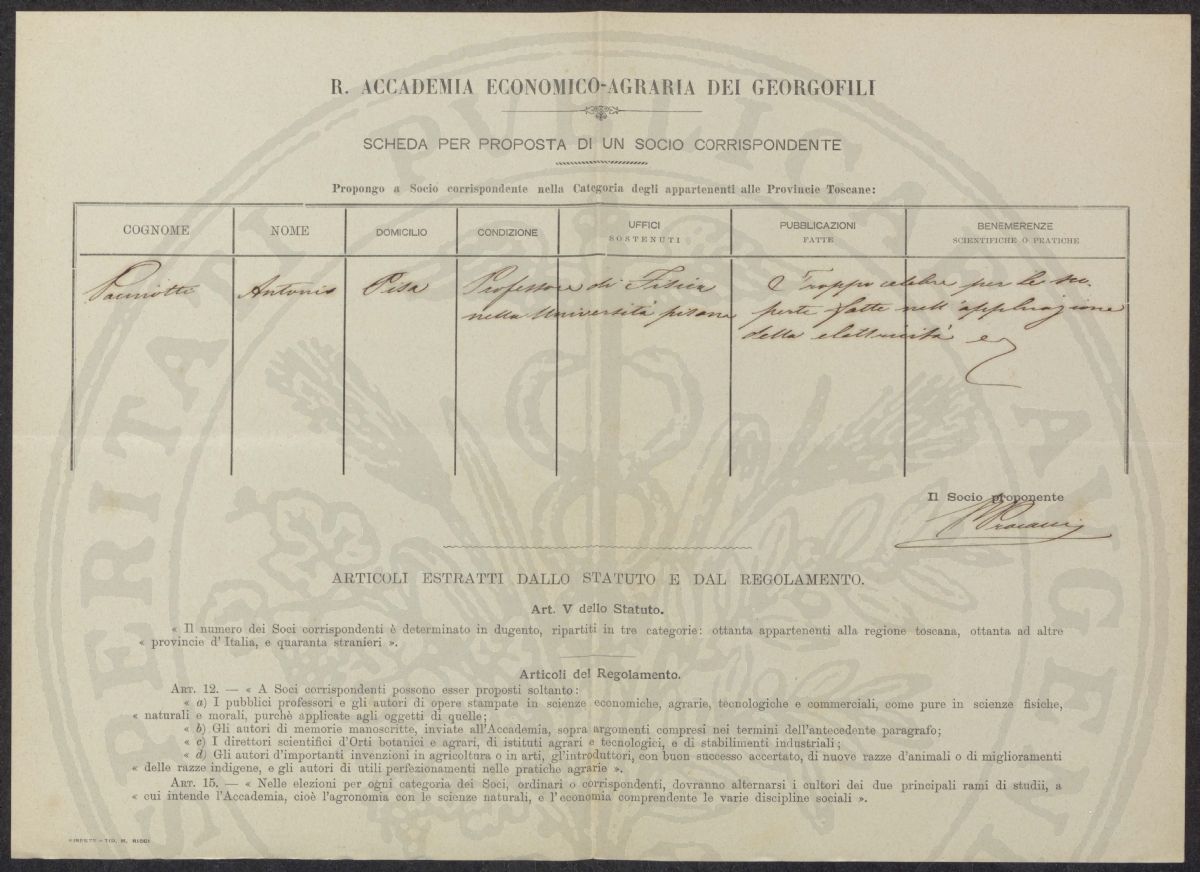 R. ACCADEMIA ECONOMICO-AGRARIA DEI GEORGOFILI
SCHEDA PER PROPOSTA DI UN SOCIO CORRISPONDENTE
Propongo a Socio corrispondente nella Categoria degli appartenenti alle Provincie Toscane:
COGNOME NOME DOMICILIO CONDIZIONE UFFICI SOSTENUTI PUBBLICAZIONI FATTE BENEMERENZE SCIENTIFICHE O PRATICHE
Pacinotti Antonio Pisa Professore di Fisica
nella Università pisana
È Troppo celebre per le sco
perte fatte nell'applicazione
della elettricità
Il Socio proponente
ARTICOLI ESTRATTI DALLO STATUTO E DAL REGOLAMENTO.
Art. V dello Statuto.
« Il numero dei Soci corrispondenti è determinato in dugento, ripartiti in tre categorie: ottanta appartenenti alla regione toscana, ottanta ad altre
« provincie d'Italia, e quaranta stranieri ».
Articoli del Regolamento.
ART. 12. — « A Soci corrispondenti possono esser proposti soltanto:
« a) I pubblici professori e gli autori di opere stampate in scienze economiche, agrarie, tecnologiche e commerciali, come pure in scienze fisiche,
« naturali e morali, purchè applicate agli oggetti di quelle;
« b) Gli autori di memorie manoscritte, inviate all'Accademia, sopra argomenti compresi nei termini dell'antecedente paragrafo;
« c) I direttori scientifici d'Orti botanici e agrari, di istituti agrari e tecnologici, e di stabilimenti industriali;
« d) Gli autori d'importanti invenzioni in agricoltura o in arti, gl'introduttori, con buon successo accertato, di nuove razze d'animali o di miglioramenti
« delle razze indigene, e gli autori di utili perfezionamenti nelle pratiche agrarie ».
ART. 15. — « Nelle elezioni per ogni categoria dei Soci, ordinari o corrispondenti, dovranno alternarsi i cultori dei due principali rami di studii, a
« cui intende l'Accademia, cioè l'agronomia con le scienze naturali, e l'economia comprendente le varie discipline sociali ».
FIRENZE - TIP. M. RICCI